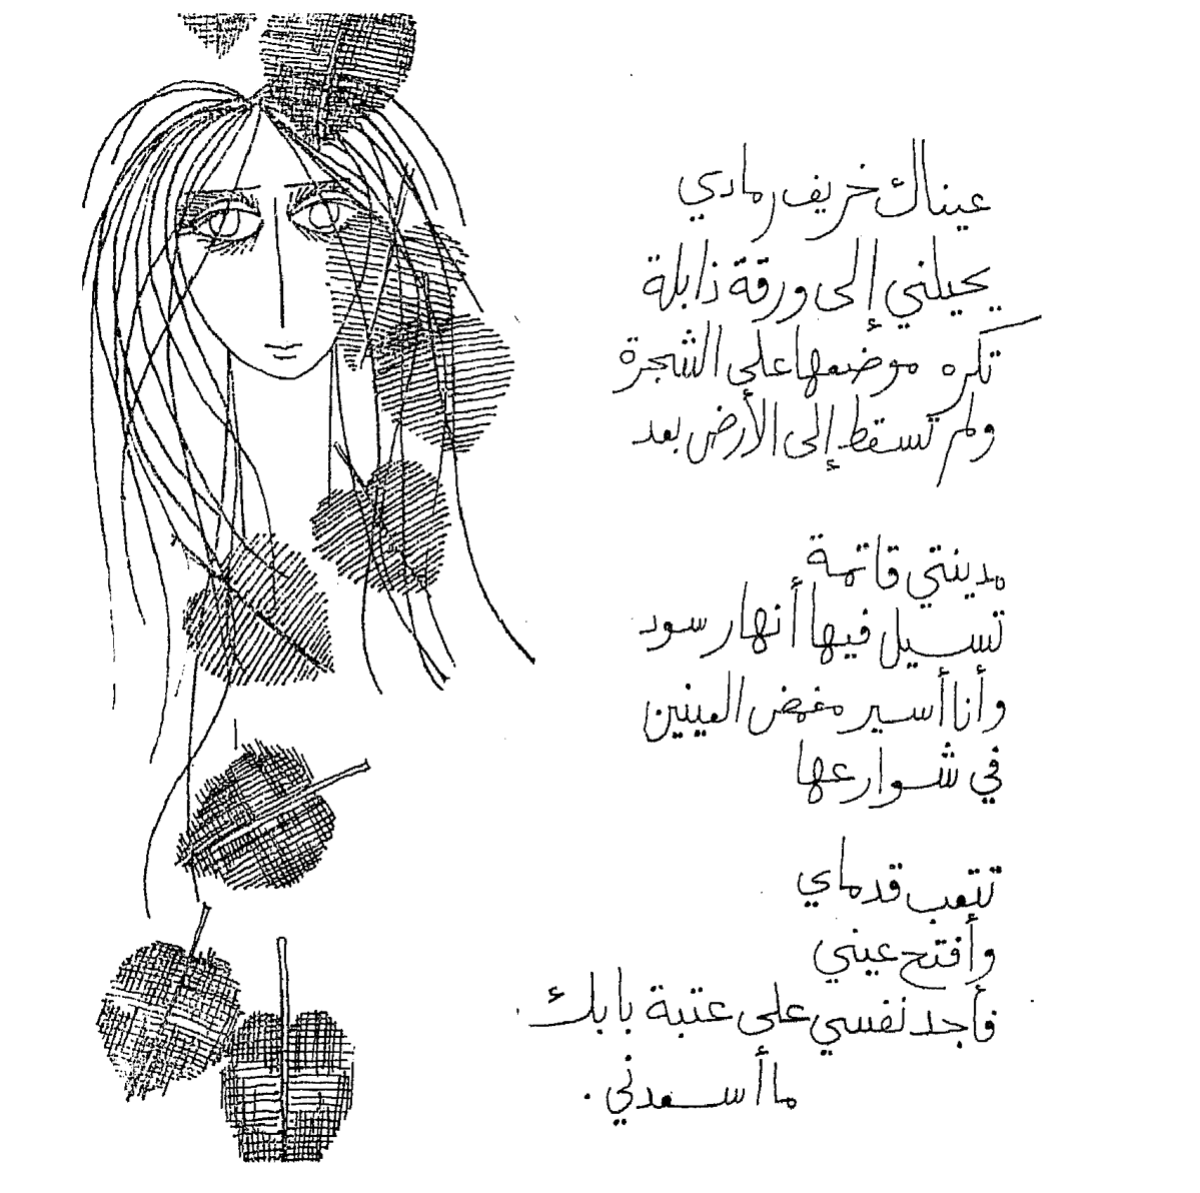 عيناك خريف رمادي
يحيلني إلى ورقة ذابلة
تكره موضعها على الشجرة
ولم تسقط إلى الأرض بعد
مدينتي قاتمة
تسيل فيها أنهار سود
وأنا أسير مغمض العينين
في شوارعها
تتعب قدماي
وأفتح عيني
فأجد نفسي على عتبة بابك
ما أسعدني .